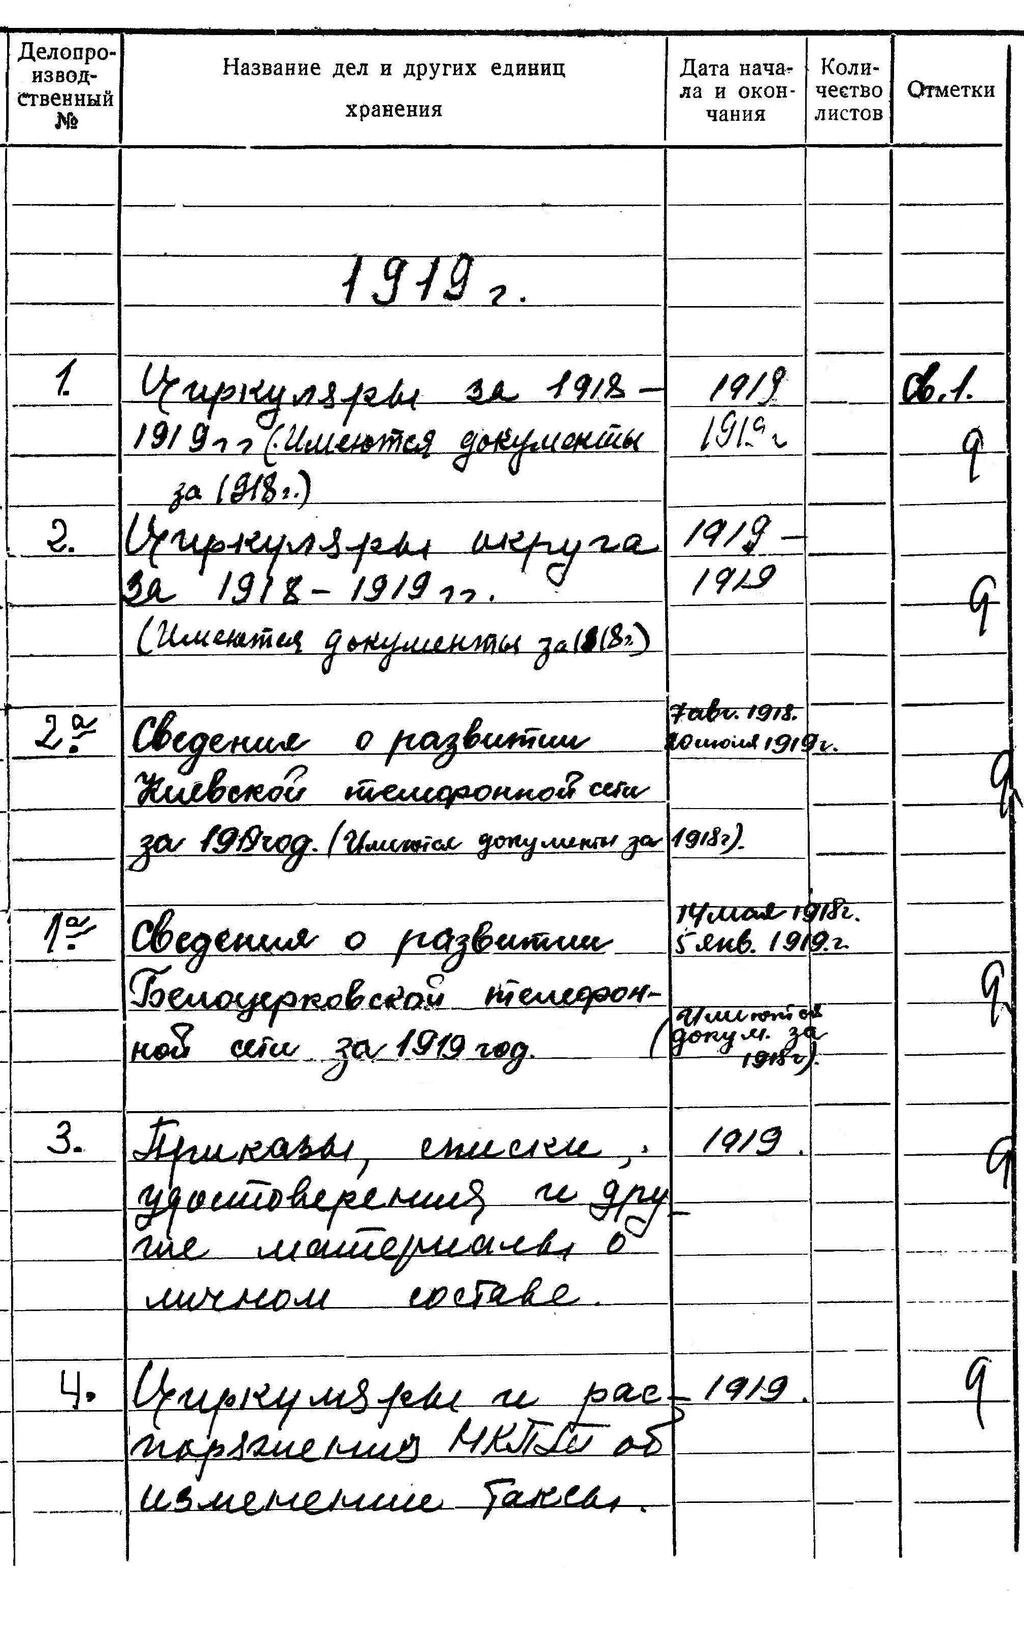 Делопро-
извод-
ственный
№
Название дел и других единиц
хранения
Дата нача-
ла и окон-
чания
Коли-
чество
листов
Отметки
1919 г.
1. Циркуляры за 1918 – 1919 Св. 1.
1919 гг (Имеются документы 1919 г
за 1918 г.)
2. Циркуляры округа 1919 –
за 1918 – 1919 гг. 1919
(Имеются документы за 1918 г.)
7 авг. 1918.
2а. Сведения о развитии 20 июля 1919 г.
Киевской телефонной сети
за 1919 год. (Имеются документы за 1918 г).
14 мая 1918 г.
1а. Сведения о развитии 5 янв. 1919 г.
Белоцерковской телефон-
ной сети за 1919 год. (Имеются
докум. за
1918 г).
3. Приказы, списки, 1919.
удостоверения и дру-
гие материалы о
личном составе.
4. Циркуляры и рас- 1919.
поряжения НКПиТ об
изменении таксы.